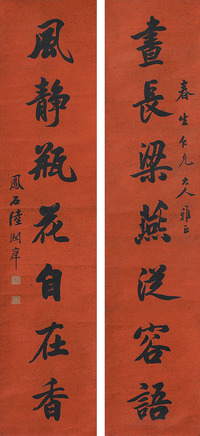 春生仁兄大人雅正
晝長梁燕従容語
風靜瓶花自在香
鳳石陸潤庠